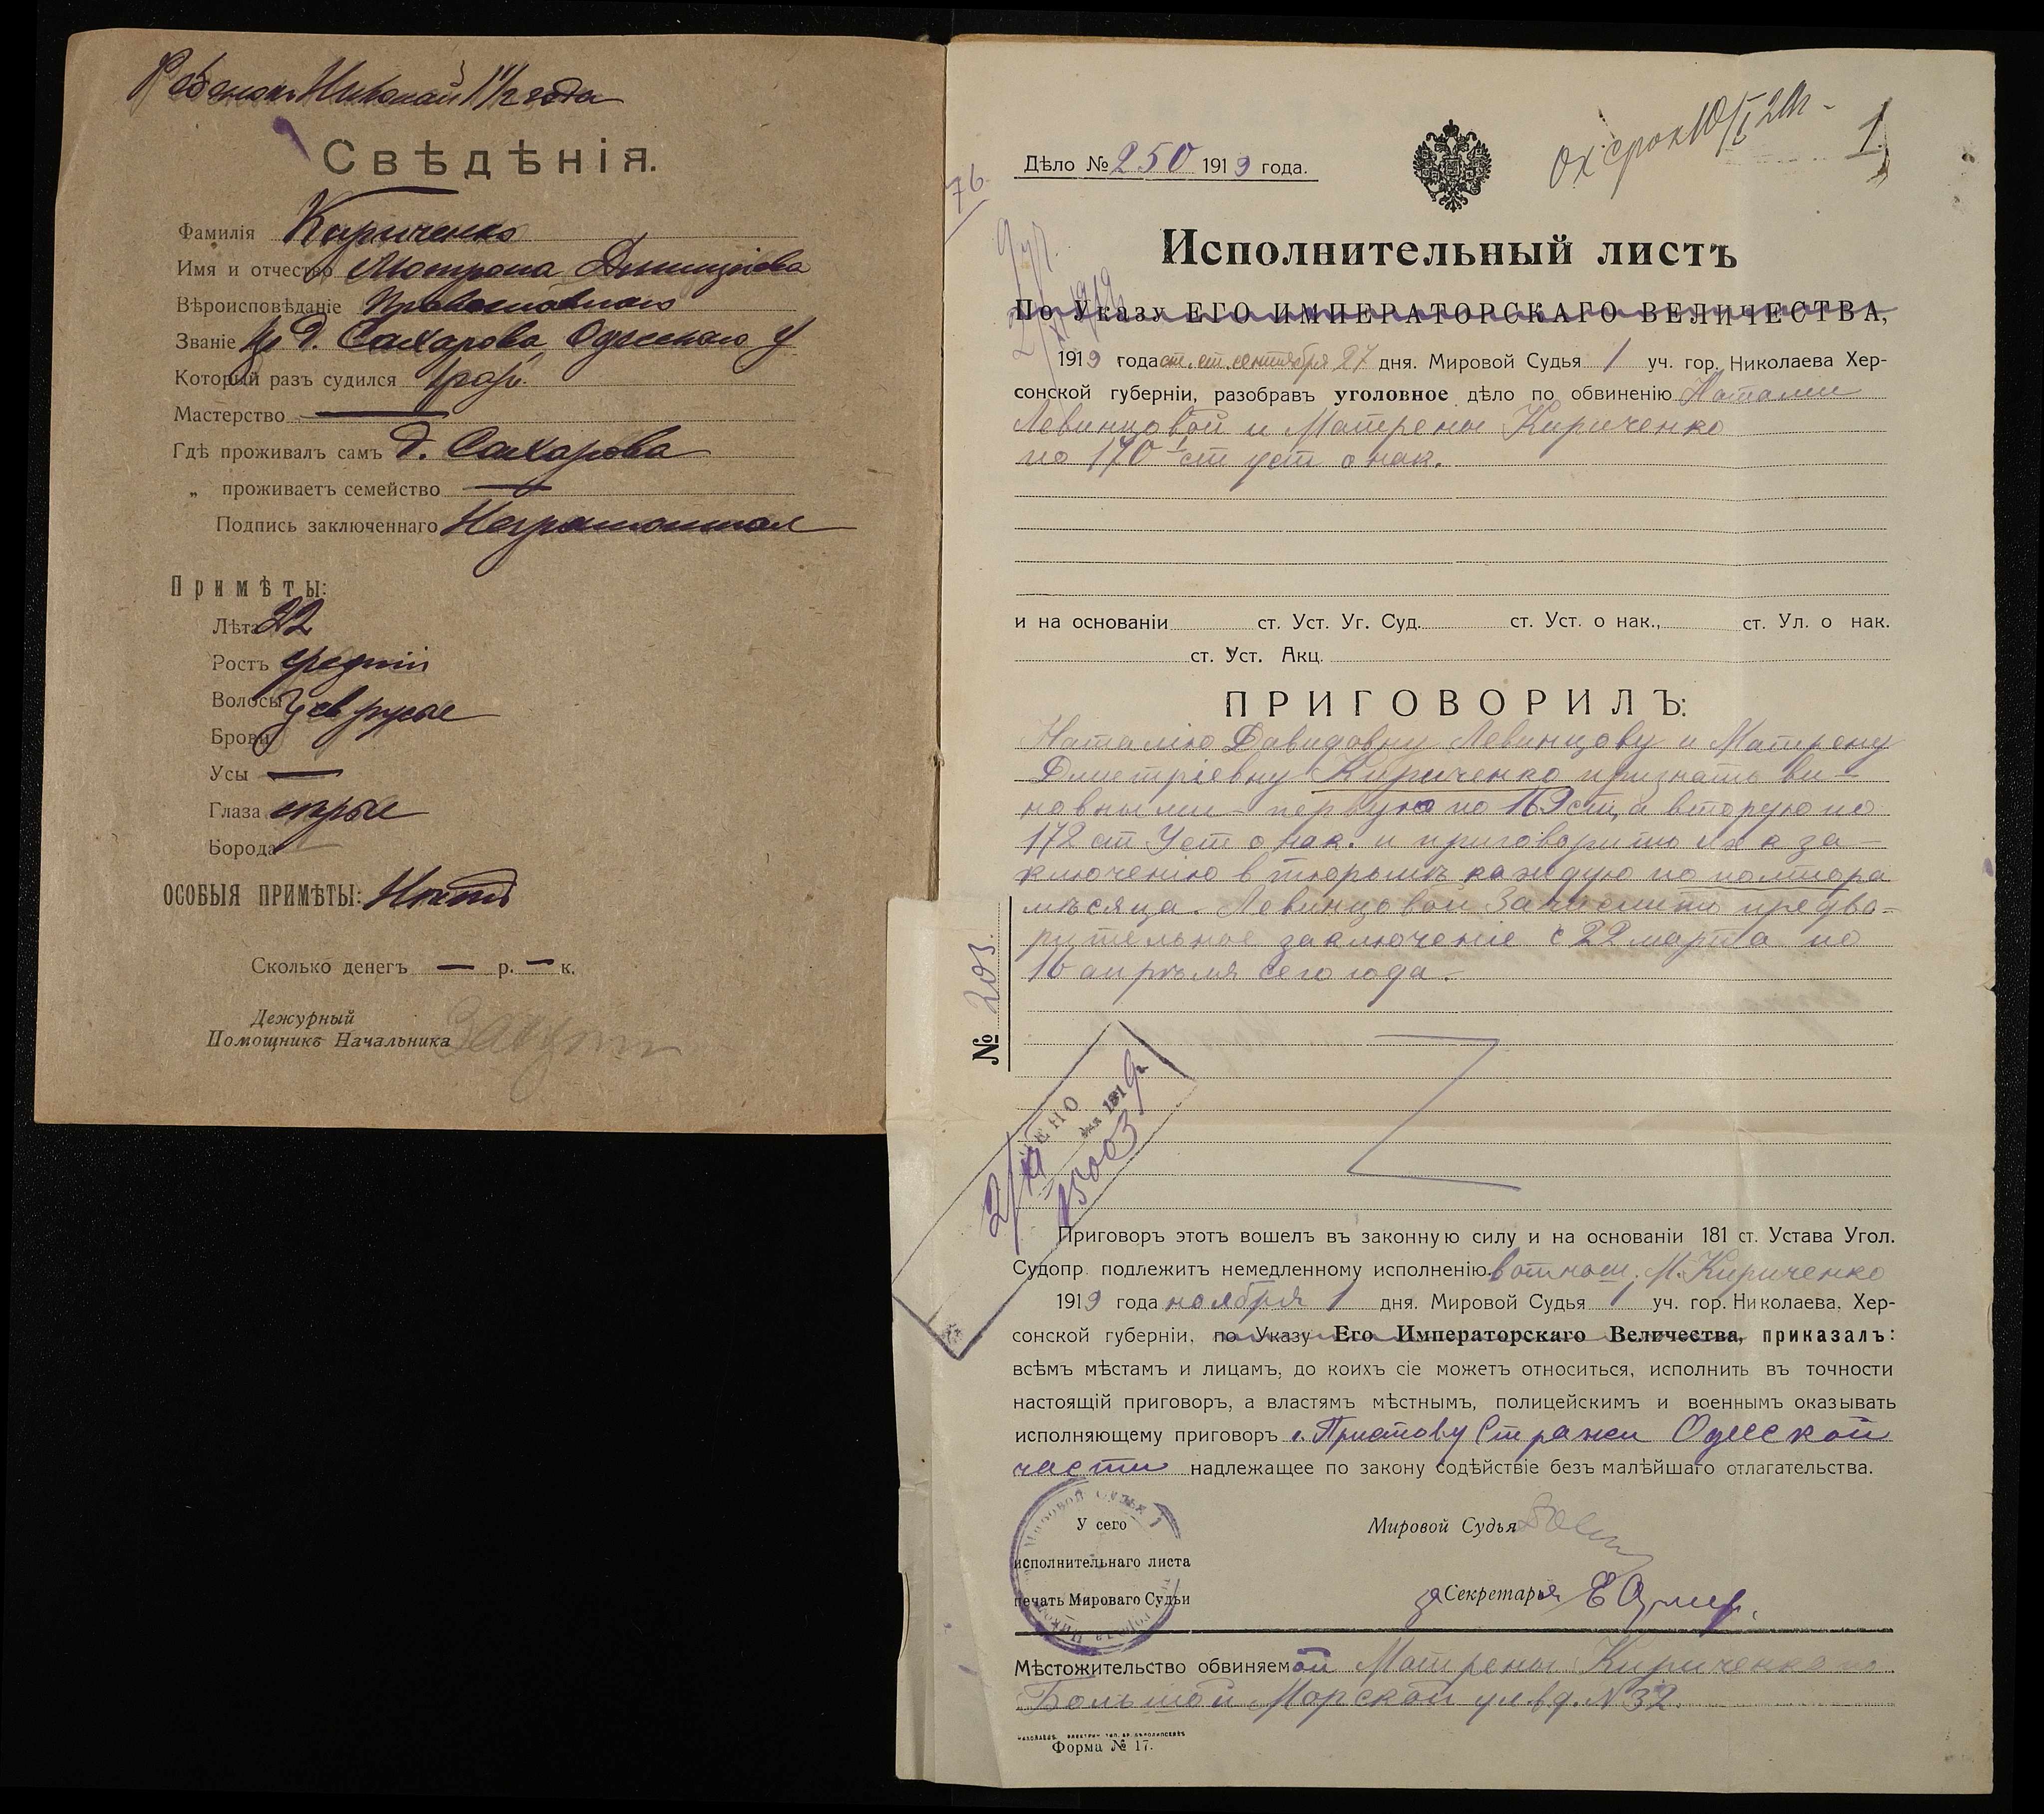 Ребенокъ Николай 1 1/2 года
Свѣдѣнія.
Фамилія Кириченко
Имя и отчество Матрона Дмитріева
Вѣроисповѣданіе Православнаго
Званіе Кр д. Сахарова, Одесскаго у
Который разъ судился 1 разъ
Мастерство —
Гдѣ проживалъ самъ д. Сахарова
„ проживаетъ семейство —
Подпись заключеннаго Неграмотная
Примѣты:
Лѣта 22
Ростъ средній
Волосы русые
Брови
Усы —
Глаза сѣрые
Борода
ОСОБЫЯ ПРИМѢТЫ: Нѣтъ
Сколько денегъ — р. — к.
Дежурный
Помощникъ Начальника
76
Дѣло № 250 1919 года.
срок 10/I 20г
1
Исполнительный листъ
По Указу ЕГО ИМПЕРАТОРСКАГО ВЕЛИЧЕСТВА,
1919 года ст. ст. сентября 27 дня. Мировой Судья 1 уч. гор. Николаева Хер-
сонской губерніи, разобравъ уголовное дѣло по обвиненію Наталии
Левинцовой и Матрены Кириченко
по 170¹ ст уст о нак.
и на основаніи ст. Уст. Уг. Суд. ст. Уст. о нак., ст. Ул. о нак.
ст. Уст. Акц.
ПРИГОВОРИЛЪ:
Наталію Давидовну Левинцову и Матрену
Дмитріевну Кириченко признать ви-
новными – первую по 169 ст, а вторую по
172 ст Уст о нак. и приговорить их к за-
ключенію в тюрьмѣ каждую по полтора
мѣсяца. Левинцовой зачислить предва-
рительное заключеніе с 22 марта по
16 апрѣля сего года.
№ 203.
ЕНО
2/XI дня 1919 г.
15003
Приговоръ этотъ вошелъ въ законную силу и на основаніи 181 ст. Устава Угол.
Судопр. подлежитъ немедленному исполненію. в отнош. М. Кириченко
1919 года ноября 1 дня. Мировой Судья 1 уч. гор. Николаева, Хер-
сонской губерніи, по Указу Его Императорскаго Величества, приказалъ:
всѣмъ мѣстамъ и лицамъ, до коихъ сіе можетъ относиться, исполнить въ точности
настоящій приговоръ, а властямъ мѣстнымъ, полицейскимъ и военнымъ оказывать
исполняющему приговоръ г. Приставу Стражи Одесской
части надлежащее по закону содѣйствіе безъ малѣйшаго отлагательства.
У сего
исполнительнаго листа
печать Мироваго Судьи
Мировой Судья
за Секретаря
Мѣстожительство обвиняемой Матрены Кириченко по
Большой Морской ул в д. N 32.
Форма № 17.